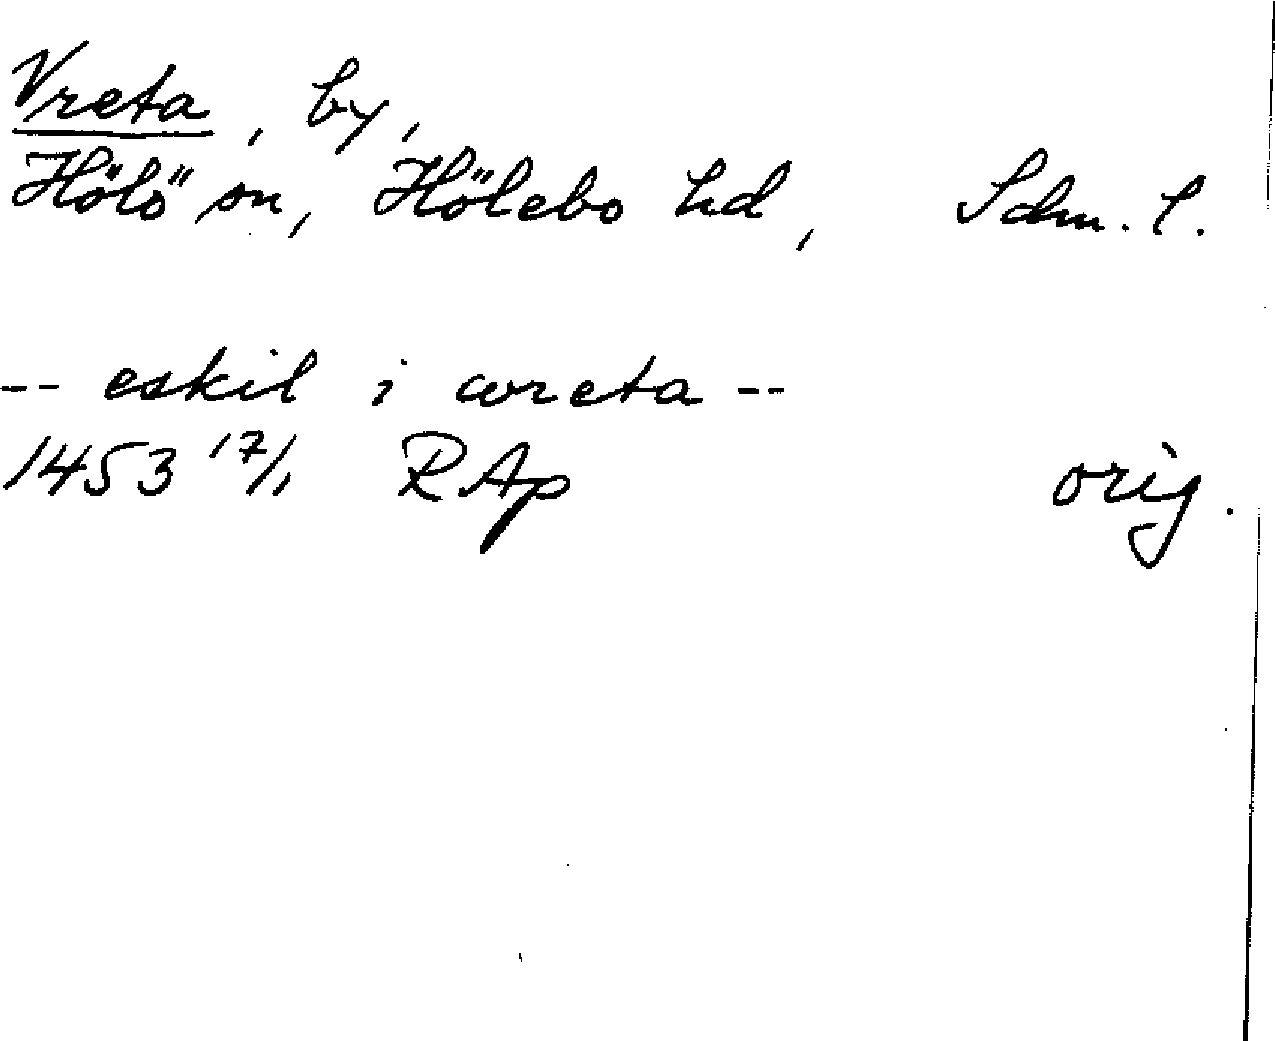 Vreta, by,
Hölö sn, Hölebo hd, Sdm. l.
-- eskil i wreta --
1453 17/1 RAp orig.